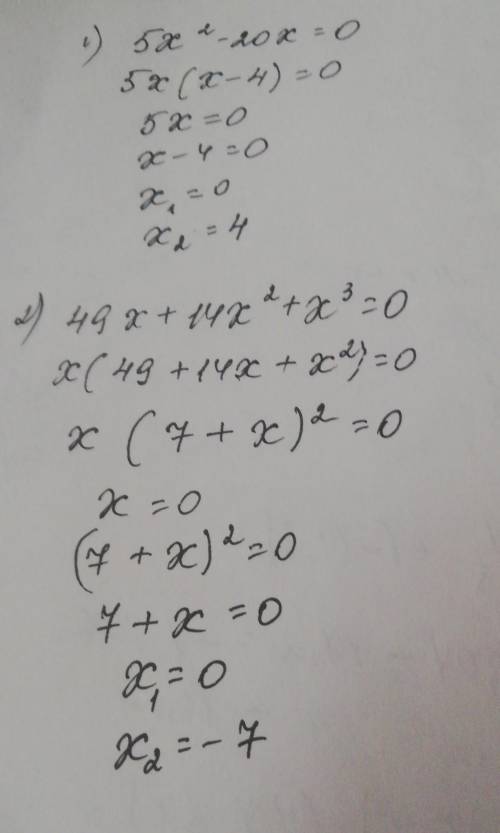 1) 5x² - 20x = 0
5x(x - 4) = 0
5x = 0
x - 4 = 0
x₁ = 0
x₂ = 4
2) 49x + 14x² + x³ = 0
x(49 + 14x + x²) = 0
x (7 + x)² = 0
x = 0
(7 + x)² = 0
7 + x = 0
x₁ = 0
x₂ = - 7